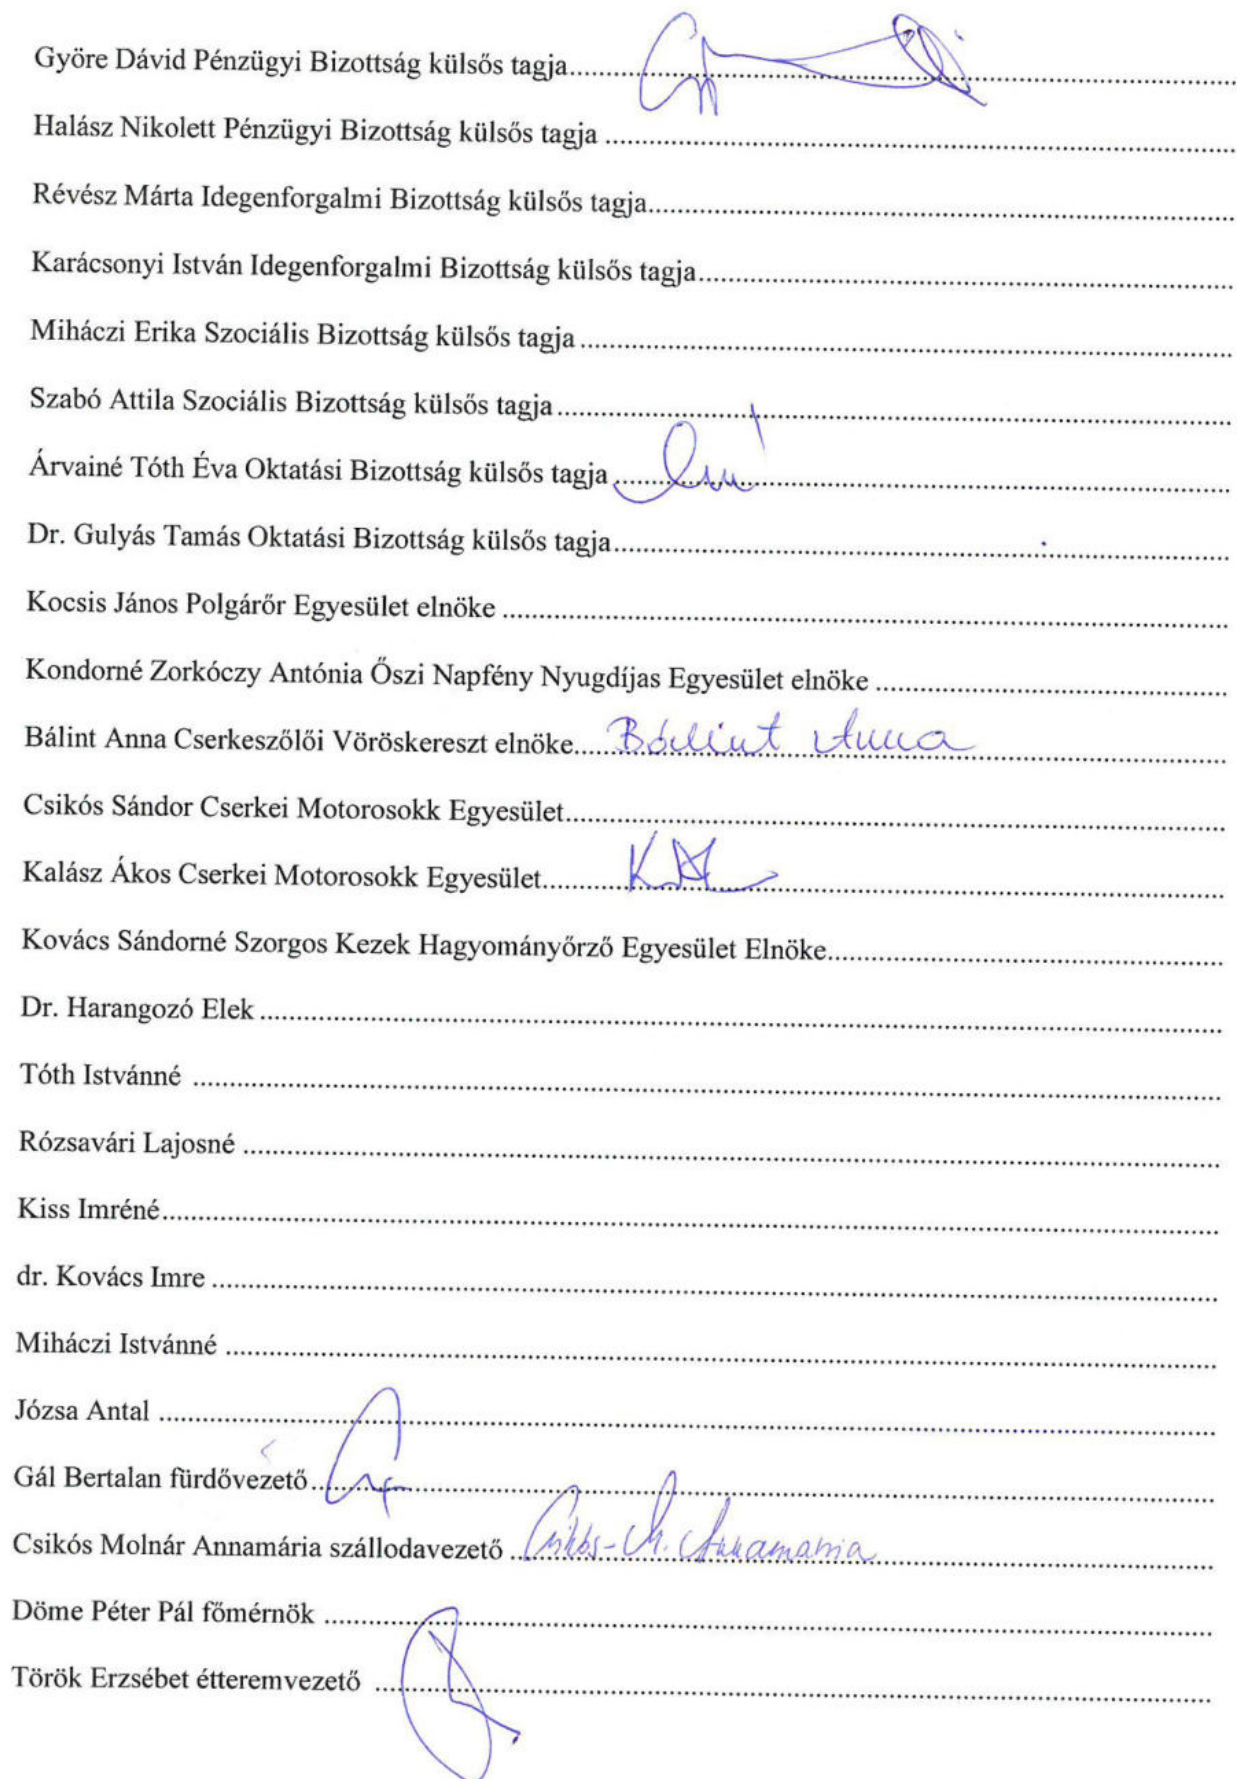 Györe Dávid Pénzügyi Bizottság külsős tagja
Halász Nikolett Pénzügyi Bizottság külsős tagja
Révész Márta Idegenforgalmi Bizottság külsős tagja
Karácsonyi István Idegenforgalmi Bizottság külsős tagja
Miháczi Erika Szociális Bizottság külsős tagja
Szabó Attila Szociális Bizottság külsős tagja
Árvainé Tóth Éva Oktatási Bizottság külsős tagja
Dr. Gulyás Tamás Oktatási Bizottság külsős tagja
Kocsis János Polgárőr Egyesület elnöke
Kondorné Zorkóczy Antónia Őszi Napfény Nyugdíjas Egyesület elnöke
Bálint Anna Cserkeszőlői Vöröskereszt elnöke Bálint Anna
Csikós Sándor Cserkei Motorosokk Egyesület
Kalász Ákos Cserkei Motorosokk Egyesület
Kovács Sándorné Szorgos Kezek Hagyományőrző Egyesület Elnöke
Dr. Harangozó Elek
Tóth Istvánné
Rózsavári Lajosné
Kiss Imréné
dr. Kovács Imre
Miháczi Istvánné
Józsa Antal
Gál Bertalan fürdővezető
Csikós Molnár Annamária szállodavezető Csikós-M. Annamária
Döme Péter Pál főmérnök
Török Erzsébet étteremvezető